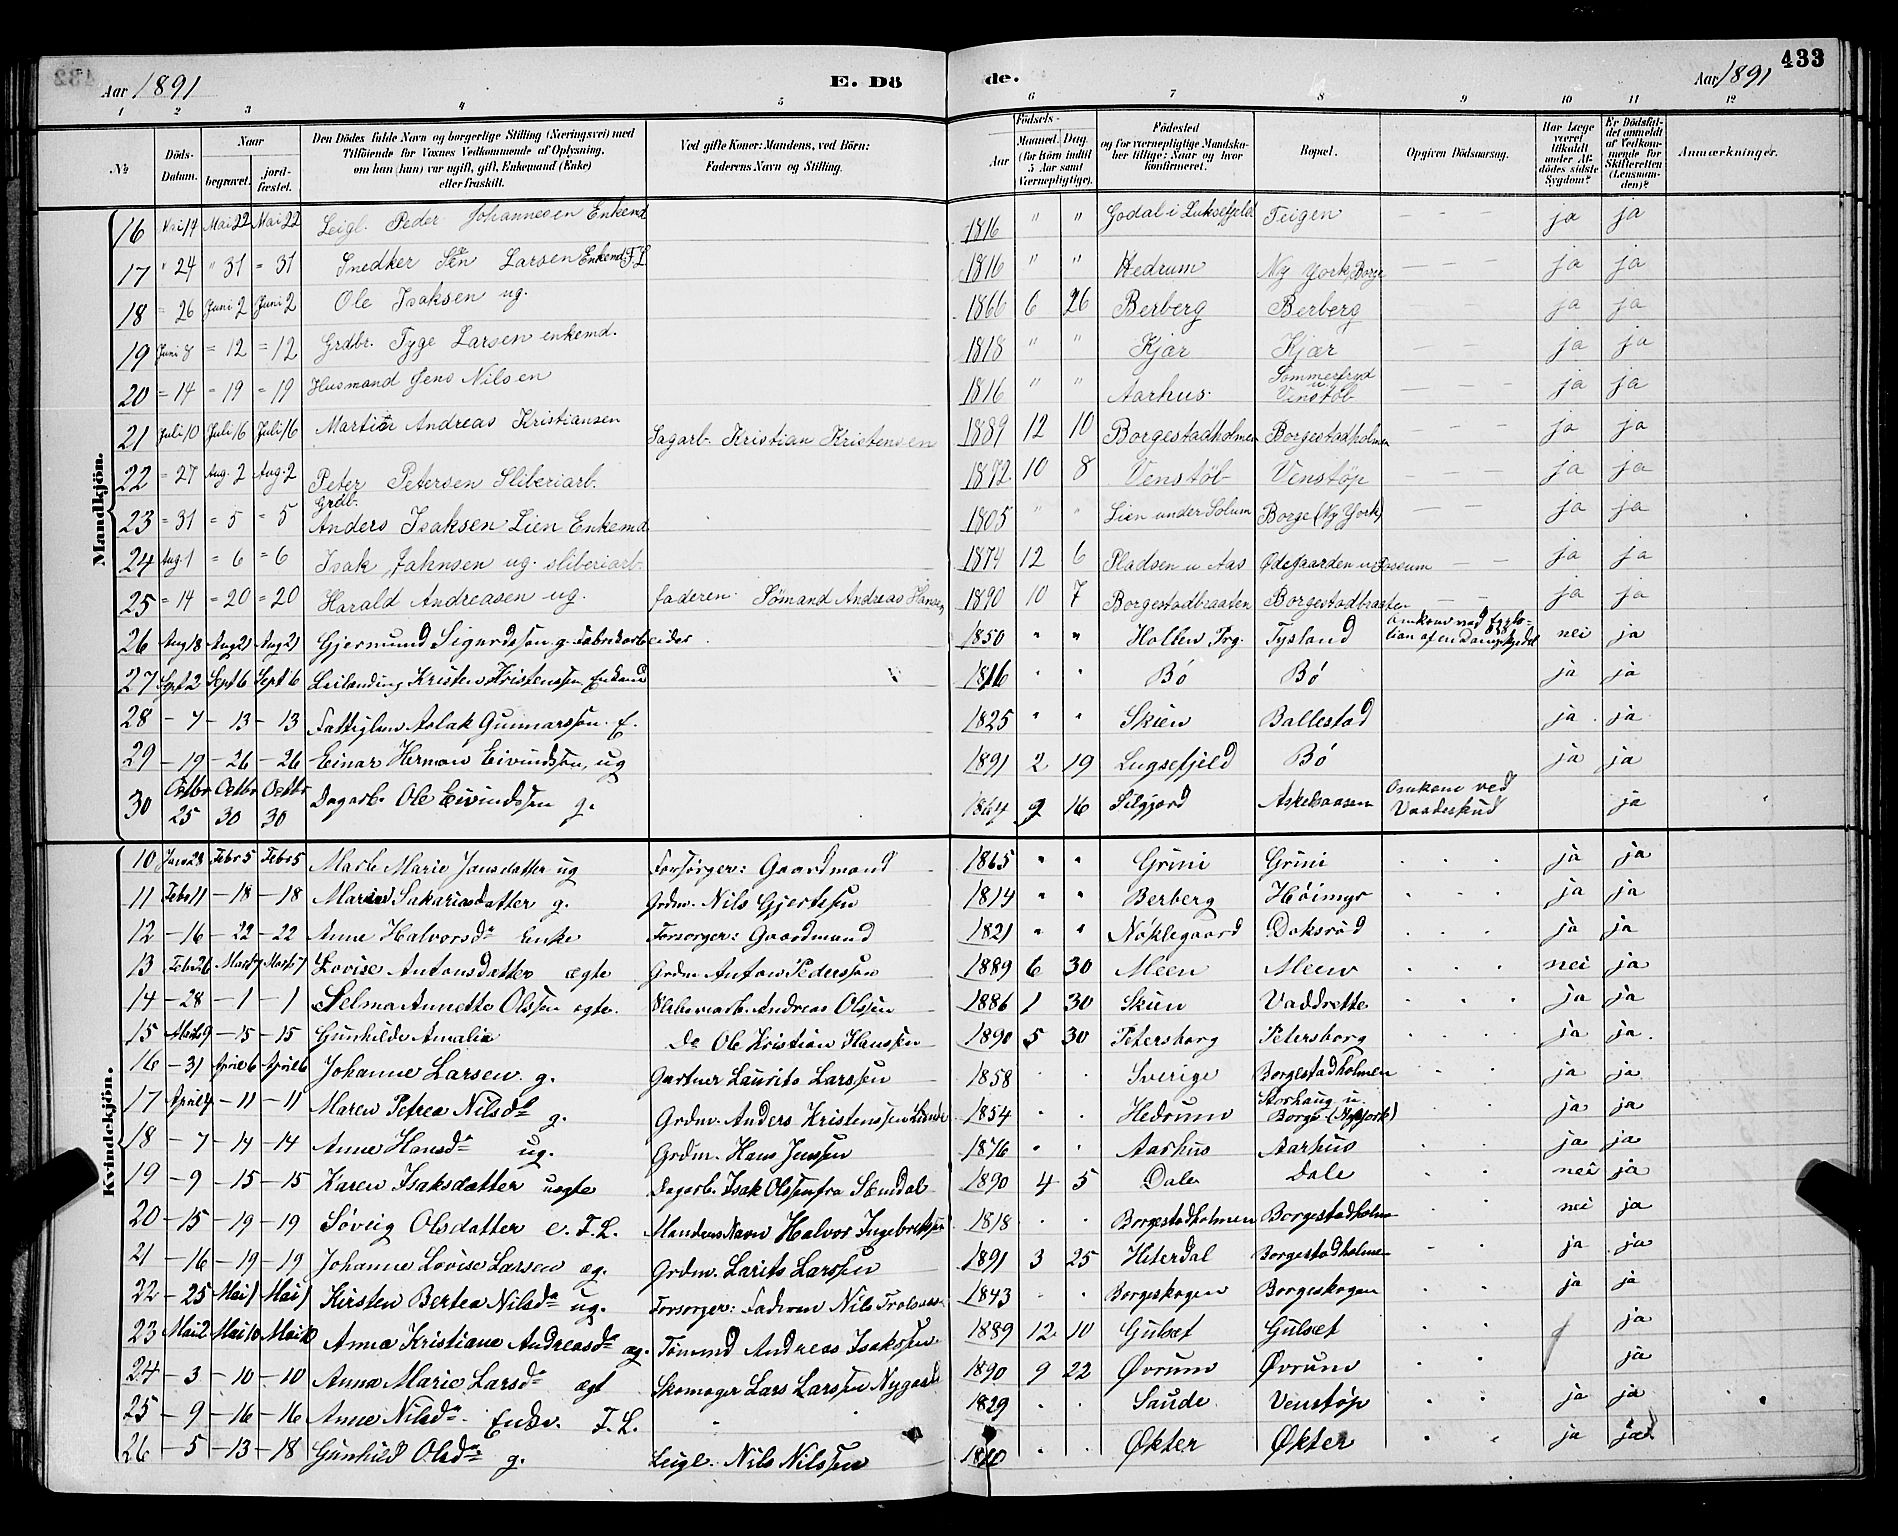 432
433
Aar 1891
E. Dö de.
Aar 1891
1 2 3 4 5 6 7 8 9 10 11 12
No
Döds-Datum.
Naar begravet. jord-fæstet.
Den Dödes fulde Navn og borgerlige Stilling (Næringsvei) med Tilföiende for Voxnes Vedkommende af Oplysning, om han (hun) var ugift, gift, Enkemand (Enke) eller fraskilt.
Ved gifte Koner: Mandens, ved Börn: Faderens Navn og Stilling.
Födsels- Aar Maaned. Dag. (for Börn indtil 5 Aar samt Værnepligtige).
Födested og for værnepligtige Mandskaber tillige: Naar og hvor konfirmeret.
Bopæl.
Opgiven Dödsaarsag.
Har Læge været tilkaldt under Afdödes sidste Sygdom?
Er Dödsfaldet anmeldt af Vedkommende for Skifteretten (Lensmanden)?
Anmærkninger.
Mandkjön.
16 Mai 14 Mai 22 Mai 22 Leigl. Peder Johannesen Enkemd 1816 " " Godal i Luksefjeld Teigen — — — ja ja
17 " 24 " 31 = 31 Snedker Sön Larsen Enkemd. F.L 1816 " " Hedrum Ny York, Borge — — — ja ja
18 = 26 Juni 2 Juni 2 Ole Isaksen ug. 1866 6 26 Berberg Berberg — — — ja ja
19 Juni 8 = 12 = 12 Grdbr. Tyge Larsen enkemd. 1818 " " Kjær Kjær — — — ja ja
20 = 14 = 19 = 19 Husmand Jens Nilsen 1816 " " Aarhus. Sommerfryd u Venstöb — — — ja ja
21 Juli 10 Juli 16 Juli 16 Martin Andreas Kristiansen Sagarb. Kristian Kristensen 1889 12 10 Borgestadholmen Borgestadholmen — — — ja ja
22 = 27 Aug. 2 Aug. 2 Peter Petersen Sliberiarb. 1872 10 8 Venstöb Venstöp — — — ja ja
23 = 31 = 5 = 5 Grdb. Anders Isaksen Lien Enkemd 1805 " " Lien under Solum Borge (Ny York) — — — ja ja
24 Aug. 1 = 6 = 6 Isak Jahnsen ug. sliberiarb. 1874 12 6 Pladsen u Aas Ødegaarden u Fossum — — ja ja
25 = 14 = 20 = 20 Harald Andreasen ug. faderen. Sömand Andreas Hansen 1890 10 7 Borgestadbraaten Borgestadbraaten — — ja ja
26 Aug 18 Aug 21 Aug 21 Gjermund Sigurdssen g. Fabrikarbeider. 1850 " " Holten Prg. Tysland Omkom ved Explotion af en Dampkjedel nei ja
27 Sept 2 Sept 6 Sept 6 Leilending Kristen Kristenssen Enkemd 1816 " " Bö Bö ja ja
28 — 7 — 13 — 13 Fattiglem Aslak Gunnarssen. E. 1825 " " Skien Ballestad ja ja
29 — 19 — 26 — 26 Einar Herman Eivindssen, ug 1891 2 19 Lugsefjeld Bö ja ja
30 Octbr 25 Octbr 30 Octbr 30 Dagarb. Ole Eivindssen g. 1864 9 16 Silgjord Askelsaasen Omkom ved Vaadeskud ja
Kvindekjön.
10 Janr 28 Febr 5 Febr 5 Marte Marie Jansdatter ug Forsörger: Gaardmand 1865 " " Grini Grini ja ja
11 Febr 11 — 18 — 18 Maren Sakariasdatter g. Grdm. Nils Gjertssen 1814 " " Berberg Höimyr ja ja
12 — 16 — 22 — 22 Anne Halvorsdr Enke Forsorger: Gaardmand 1821 " " Nöklegaard Doksröd ja ja
13 Febr 26 Marts 7 Marts 7 Lovise Antonsdatter ægte Grdm Anton Pederssen 1889 6 30 Meen Meen nei ja
14 — 28 — 1 — 1 Selma Annette Olssen ægte. Sliberiarb. Andreas Olssen 1886 1 30 Skien Vaddrette ja ja
15 Marts 9 — 15 — 15 Gunhilde Amalia Do Ole Kristian Hanssen 1890 5 30 Petersborg Petersborg ja ja.
16 — 31 April 6 April 6 Johanne Larsen. g. Gartner Laurits Larssen 1858 Sverige Borgestadholmen ja ja
17 April 4 — 11 — 11 Maren Petrea Nilsdr g. Grdm. Anders Kristenssen 1854 Hedrum Storhaug u. Borge (Ny York) ja ja
18 — 7 — 14 — 14 Anne Hansdr ug. Grdm. Hans Jenssen 1876 Aarhus Aarhus ja ja
19 — 9 — 15 — 15 Karen Isaksdatter uægte Dagarb. Isak Olssen fra Slemdal 1890 4 5 Dale Dale nei ja
20 — 15 — 19 — 19 Söveig Olsdatter e. F.L. Mandens Navn Halvor Ingebretssen 1818 Borgestadholmen Borgestadholm nei ja
21 — 16 — 19 — 19 Johanne Lovise Larsen æg. Grdm. Larits Larssen 1891 3 25 Hiterdal Borgestadholmen ja ja
22 — 25 Mai 1 Mai 1 Kirsten Bertea Nilsdr ug. Forsorger: Faderen Nils 1843 Borgeskogen Borgeskogen ja ja
23 Mai 2 Mai 10 Mai 10 Anna Kristiane Andreasdr æg. Tömmd Andreas Isakssen 1889 12 10 Gulset Gulset ja
24 — 3 — 10 — 10 Anna Marie Larsdr ægt Skomager Lars Larssen Nygaard 1890 9 22 Øvrum Øvrum ja
25 — 9 — 16 — 16 Anne Nilsdr. Enke. F.L. " 1829 Saude Venstöp ja ja
26 — 5 — 13 — 18 Gunhild Olsdr g. Leigl. Nils Nilssen Økter Økter ja ja